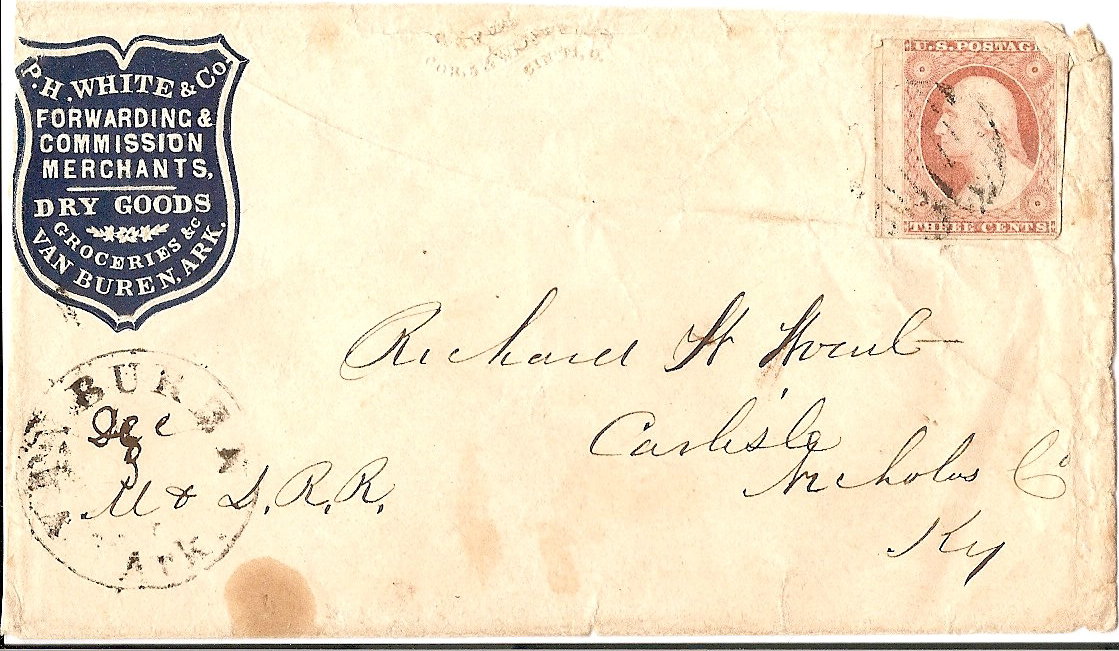 P. H. WHITE & Co.
FORWARDING &
COMMISSION
MERCHANTS,
DRY GOODS
GROCERIES &c
VAN BUREN, ARK.
U.S. POSTAG
THREE CENTS
Richard H
Carlisle
Nicholas Co
Ky
BUREN
Dec
8
M & L. R. R.
Ark.